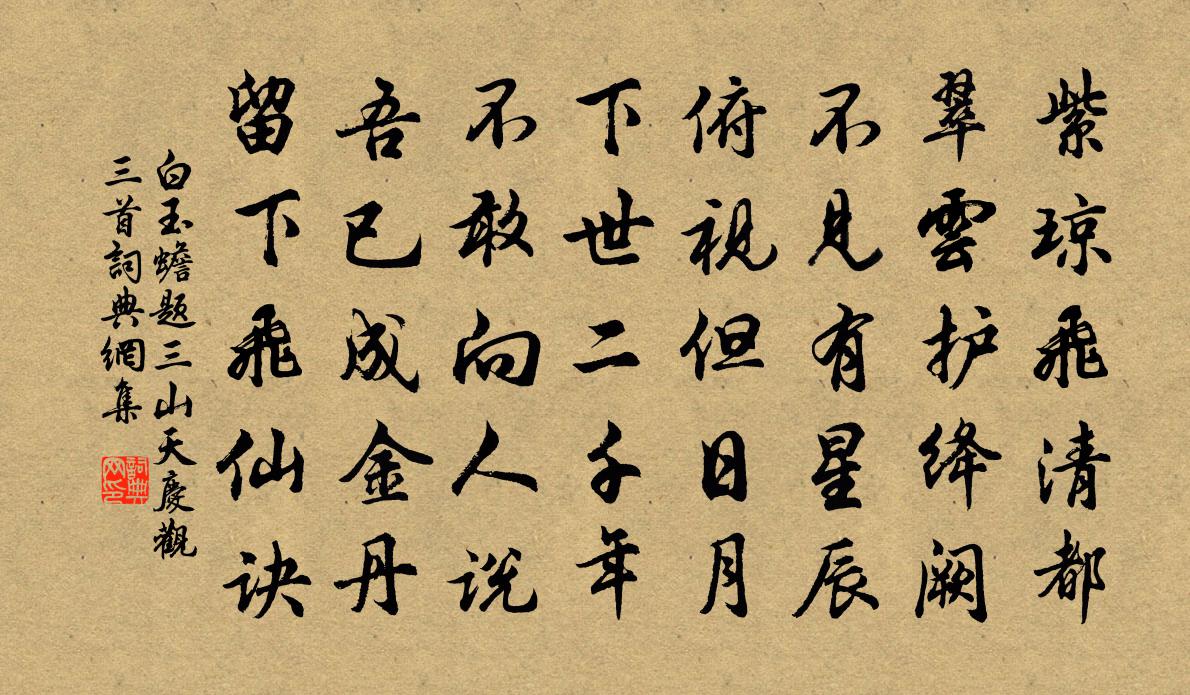 紫琼飛清都
翠雲护绛阙
不見有星辰
俯視但日月
下世二千年
不敢向人说
吾已成金丹
留下飛仙诀
白玉蟾题三山天慶觀
三首詞典網集
詞典网印